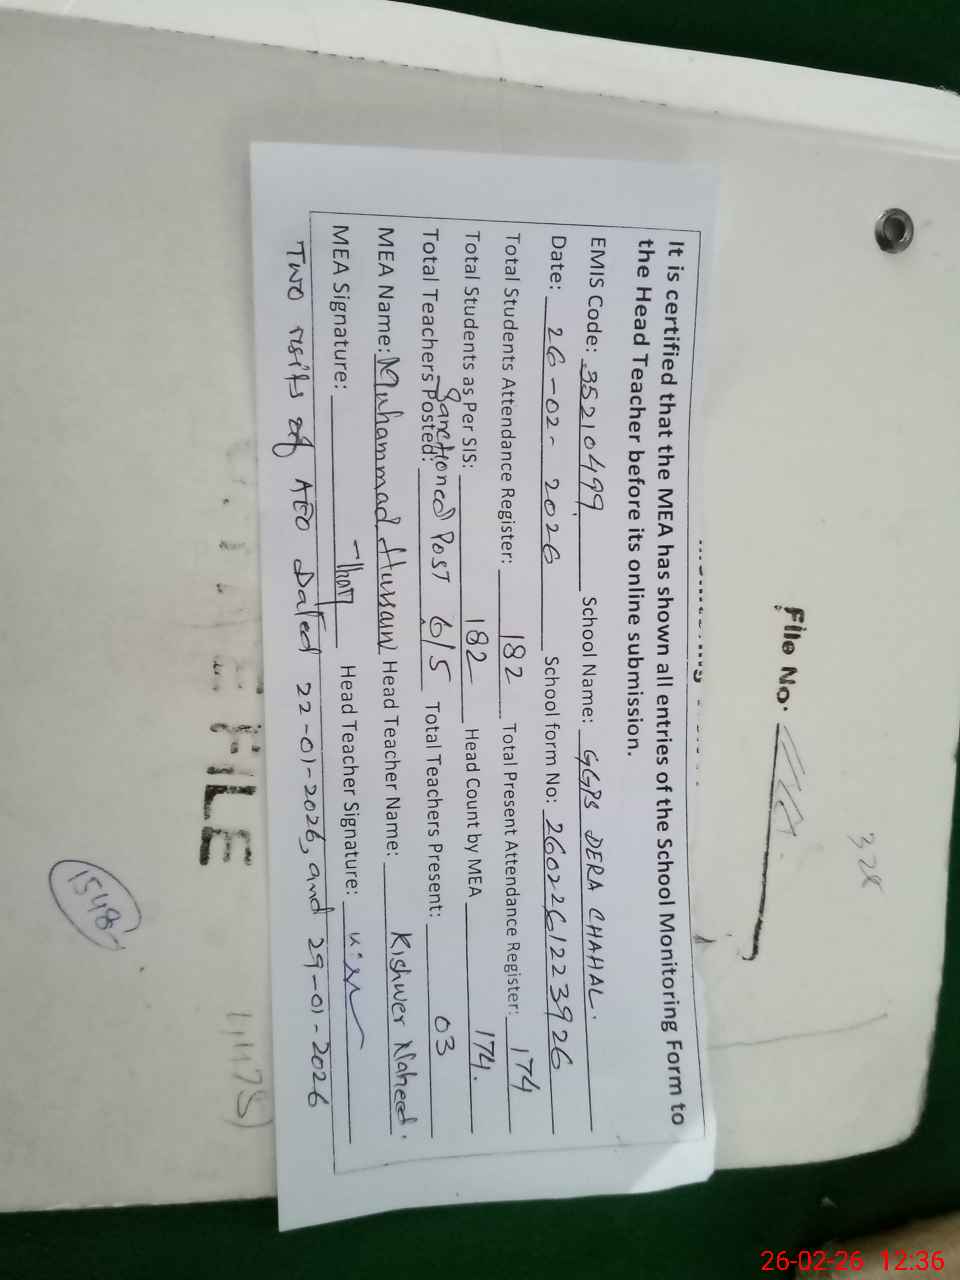 File No.
328
It is certified that the MEA has shown all entries of the School Monitoring Form to
the Head Teacher before its online submission.
EMIS Code: 35210499 School Name: GGPS DERA CHAHAL.
Date: 26-02-2026 School form No: 260226122 3926
Total Students Attendance Register: 182 Total Present Attendance Register: 174
Total Students as Per SIS: 182 Head Count by MEA 174.
Sanctioned Post
Total Teachers Posted: 6/5 Total Teachers Present: 03
MEA Name: Muhammad Hussain Head Teacher Name: Kishwer Naheed.
MEA Signature: Head Teacher Signature:
Two visits of AEO Dated 22-01-2026, and 29-01-2026
FILE
1548
26-02-26 12:36